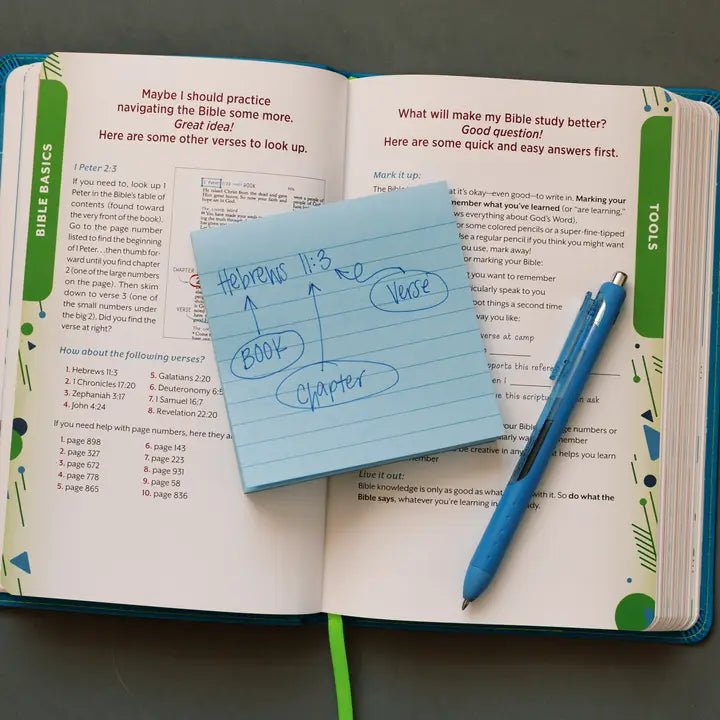 BIBLE BASICS
Maybe I should practice
navigating the Bible some more.
Great idea!
Here are some other verses to look up.
1 Peter 2:3
If you need, look up 1
Peter in the Bible's table of
contents (found toward
the very front of the book).
Go to the page number
listed to find the beginning
of 1 Peter...then thumb for-
ward until you find chapter
2 (one of the large numbers
on the page). Then skim
down to verse 3 (one of
the small numbers under
the big 2). Did you find the
verse at right?
BOOK
CHAPTER
VERSE
How about the following verses?
1. Hebrews 11:3
2. 1 Chronicles 17:20
3. Zephaniah 3:17
4. John 4:24
5. Galatians 2:20
6. Deuteronomy 6:
7. 1 Samuel 16:7
8. Revelation 22:20
If you need help with page numbers, here they a
1. page 898
2. page 327
3. page 672
4. page 778
5. page 865
6. page 143
7. page 223
8. page 931
9. page 58
10. page 836
Hebrews 11:3
Verse
BOOK
Chapter
What will make my Bible study better?
Good question!
Here are some quick and easy answers first.
TOOLS
Mark it up:
The at it's okay—even good—to write in. Marking your
member what you've learned (or "are learning,"
ws everything about God's Word).
or some colored pencils or a super-fine-tipped
se a regular pencil if you think you might want
u use, mark away!
or marking your Bible:
you want to remember
rticularly speak to you
pot things a second time
way you like:
verse at camp
pports this refer
en I
use this scrip an ask
our Bible ge numbers or
larly wa member
to be creative in any at helps you learn
member
Live it out:
Bible knowledge is only as good as what with it. So do what the
Bible says, whatever you're learning in dy.